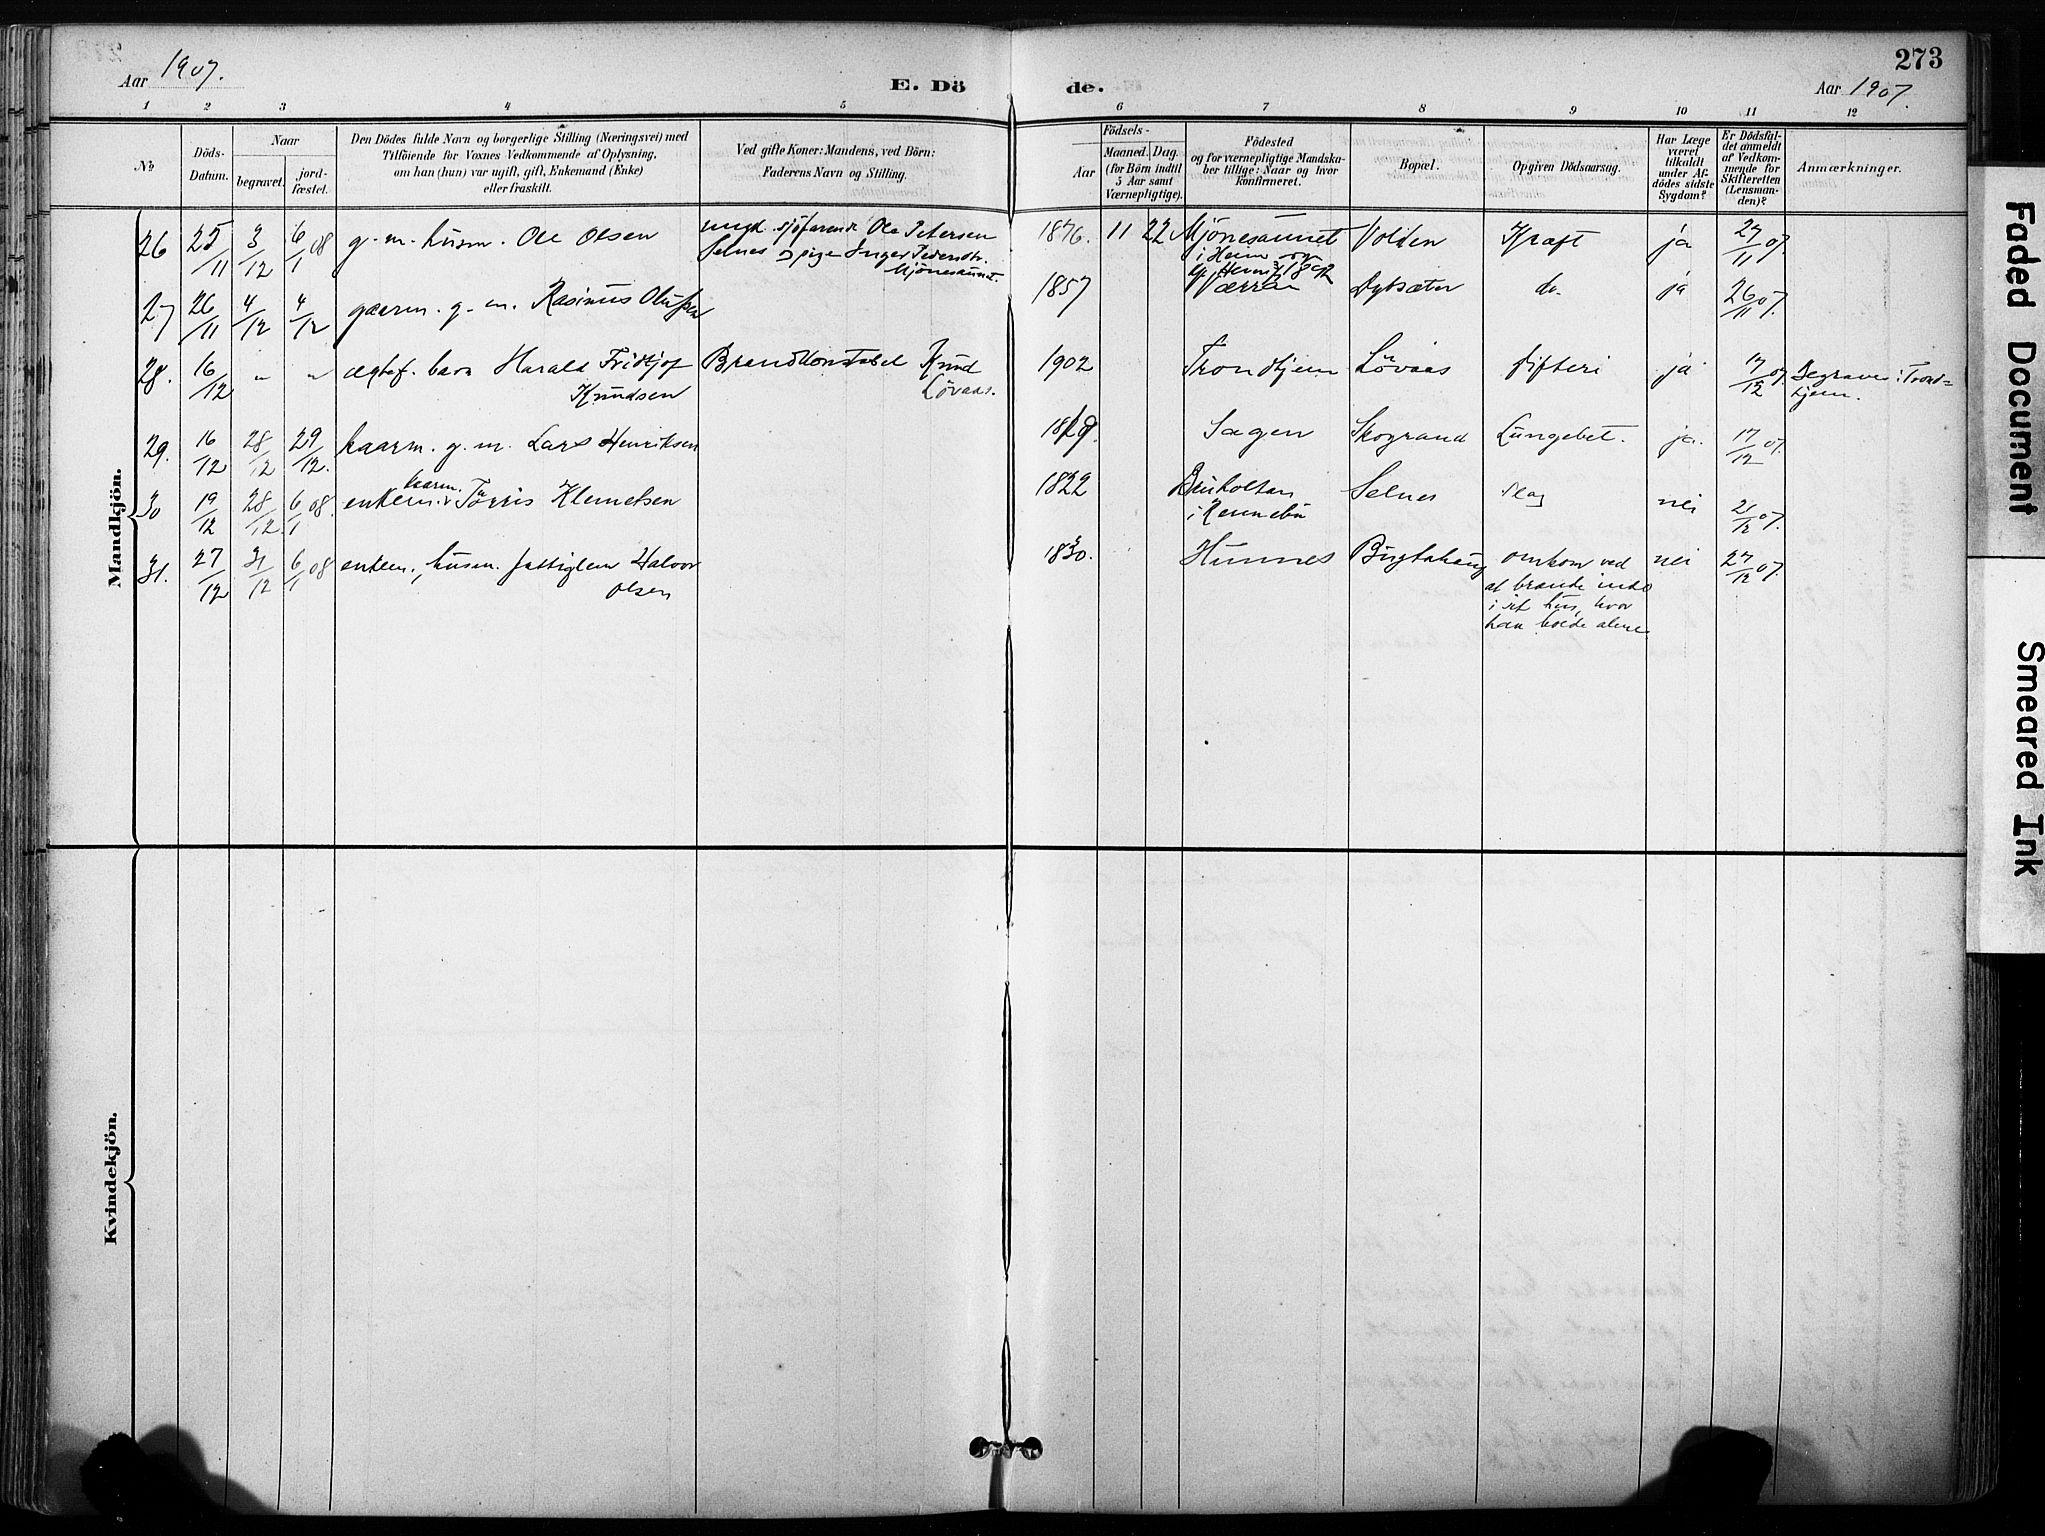 273
Aar 1907.
E. Dö
de.
Aar 1907.
1 2 3 4 5 6 7 8 9 10 11 12
No.
Döds-
Datum.
Naar
begravet.
jord-
fæstet.
Den Dödes fulde Navn og borgerlige Stilling (Næringsvei) med
Tilföiende for Voxnes Vedkommende af Oplysning,
om han (hun) var ugift, gift, Enkemand (Enke)
eller fraskilt.
Ved gifte Koner: Mandens, ved Börn:
Faderens Navn og Stilling.
Födsels-
Aar
Maaned.
Dag.
(for Börn indtil
5 Aar samt
Værnepligtige).
Födested
og for værnepligtige Mandska-
ber tillige: Naar og hvor
konfirmeret.
Bopæl.
Opgiven Dödsaarsag.
Har Læge
været
tilkaldt
under Af-
dödes sidste
Sygdom?
Er Dödsfal-
det anmeldt
af Vedkom-
mende for
Skifteretten
(Lensman-
den)?
Anmærkninger.
Mandkjön.
26 25/11 3/12 6/1 08 g. m. husm. Ole Olsen
ungk. sjöfarende Ole Petersen
Selnes og pige Inger Pedersdtr.
Mjönesaunet.
1876. 11 22 Mjönesaunet
i Heim
1892
Volden Kræft ja 27/11 07.
27 26/11 4/12 4/12 gaarm. g. m. Rasmus Olufsen
1857 Værran Dybsæter do. ja 26/11 07.
28. 16/12 " " ægtef. barn Harald Fridtjof
Knudsen
Brandkonstabel Knud
Lövaas.
1902 Trondhjem Lövaas Difteri ja 17/12 07. Begraves i Trond=
hjem.
29. 16/12 28/12 29/12. kaarm. g. m. Lars Henriksen
Sagen Skogrand Lungebet. ja. 17/12 07.
30 19/12 28/12. 6/1 08. enkem. kaarm. Tørris Klemetsen
1822
i Rennebu
Selnes Slag nei 21/12 07.
31. 27/12 31/12 6/1 08 enkem., husm. fattiglem Halvor
Olsen
1830. Hunnes Bugtahaug omkom ved
at brænde inde
i sit hus, hvor
han boede alene.
nei 27/12 07.
Kvindekjön.
Faded Document
Smeared Ink